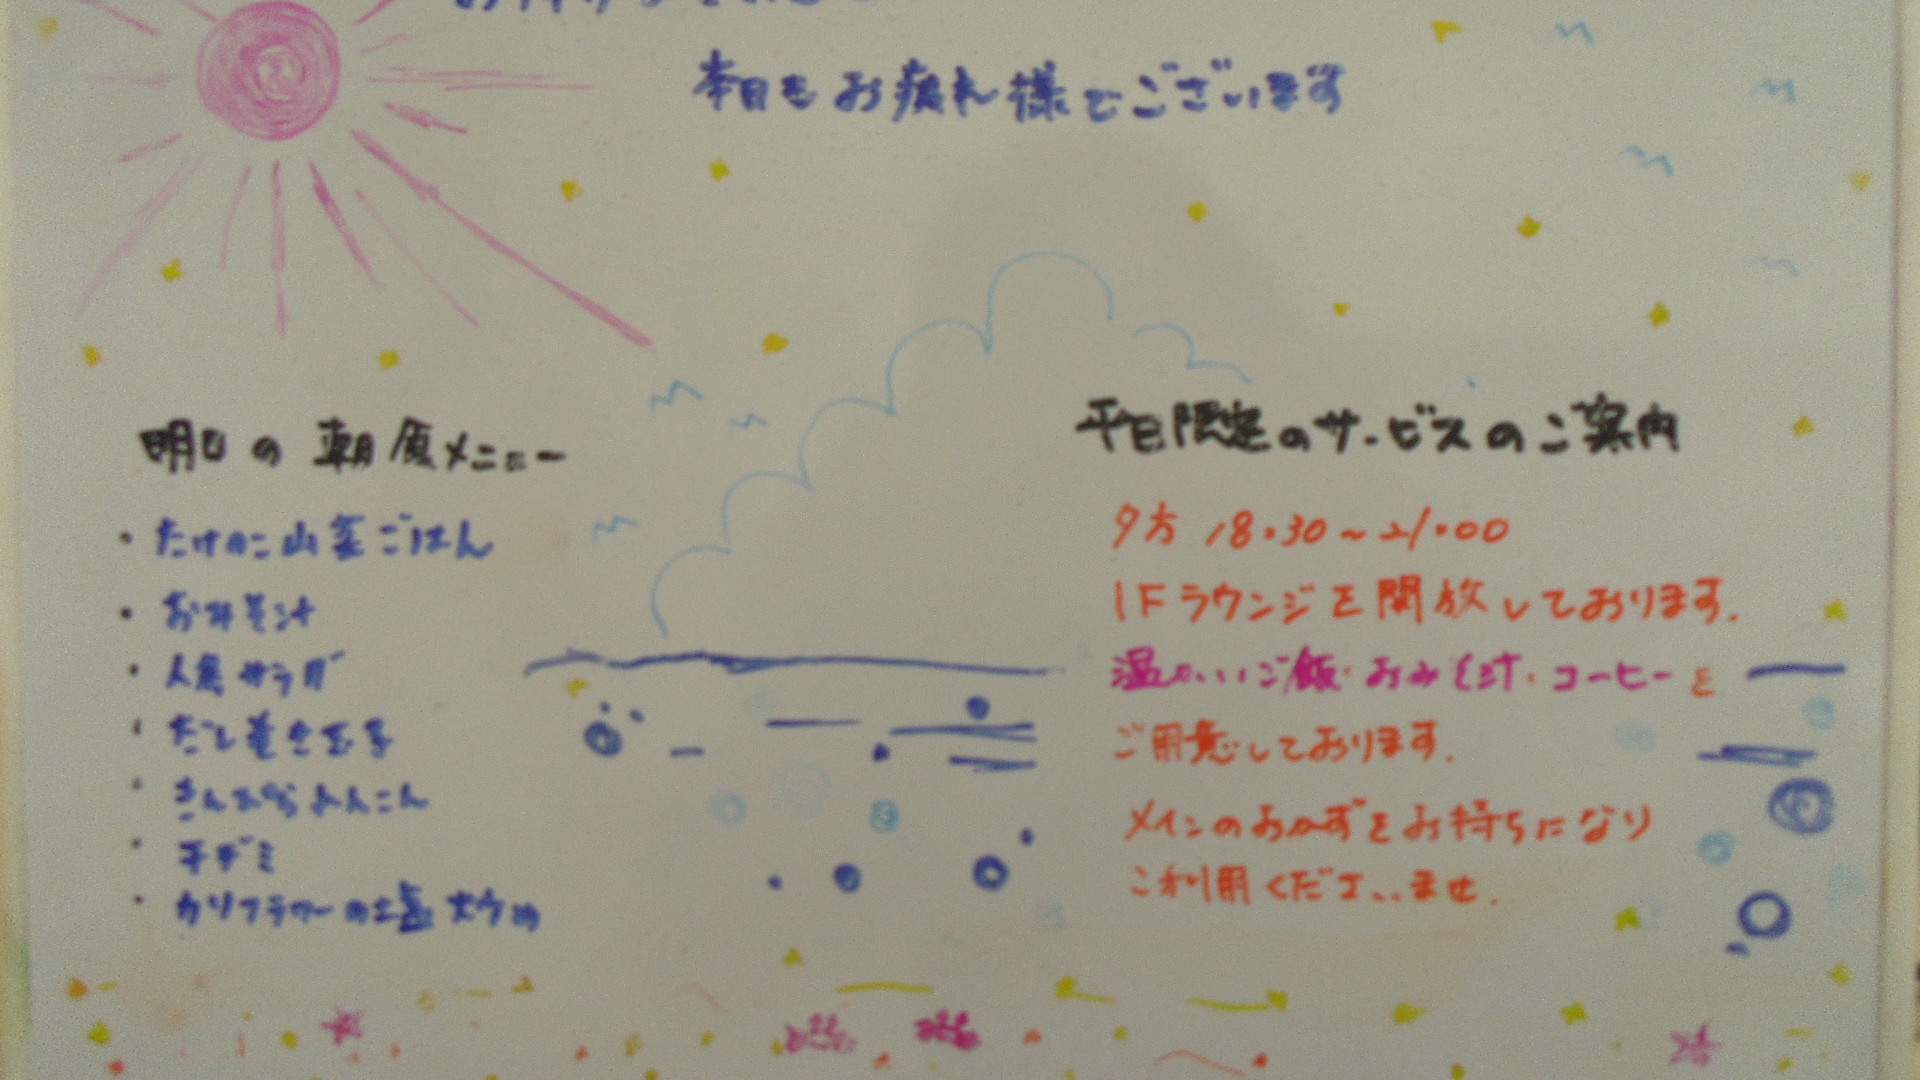 本日もお疲れ様でございます
明日の朝食メニュー
・たけのこ山菜ごはん
・おみそ汁
・サラダ
・だし巻き玉子
・きんぴられんこん
・チヂミ
・カリフラワーの
平日限定のサービスのご案内
夕方 18:30～21:00
1Fラウンジを開放しております.
温かいご飯・おみそ汁・コーヒーを
ご用意しております.
メインのおかずをお持ちになり
ご利用くださいませ.